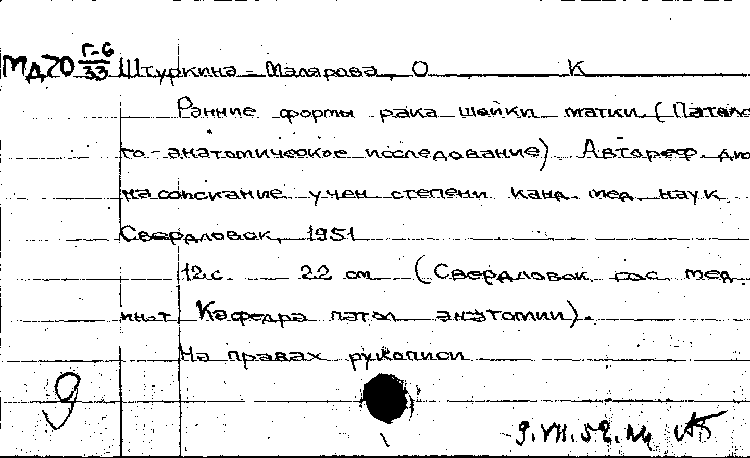 МД70 Г-6/33 Штуркина-Малярова, О К
Ранние формы рака шейки матки. (Патало
го-анатомическое исследование) Автореф. дис
на соискание учен степени канд. мед. наук
Свердловск, 1951
12 с. 22 см (Свердловск гос мед.
ин-т Кафедра патол анатомии).
На правах рукописи
9
9.VII.52.